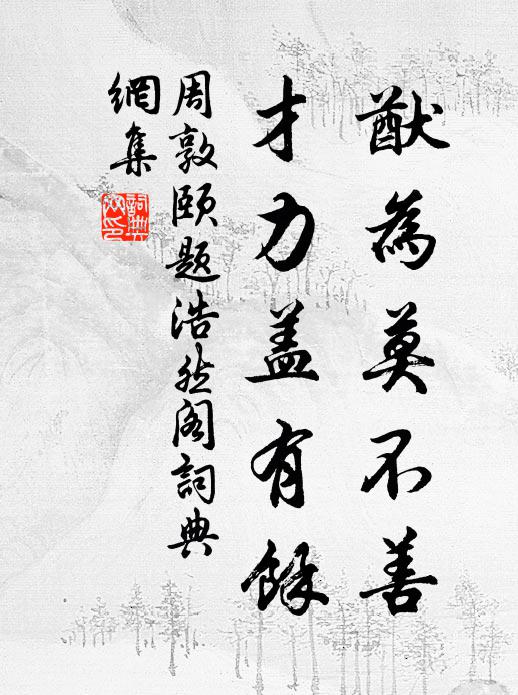 猷為莫不善
才力盖有餘
周敦頤題浩然阁詞典
網集
詞典網印